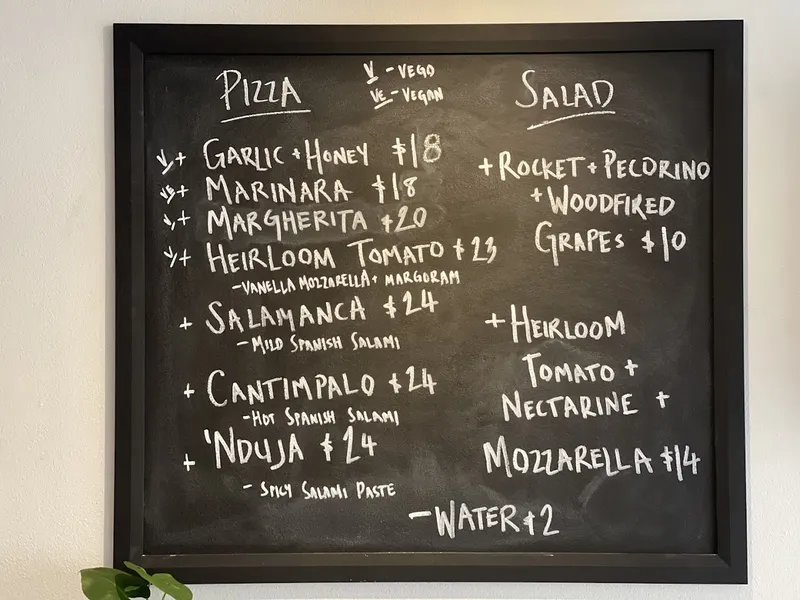 PIZZA
V - VEGO
VE - VEGAN
V + GARLIC + HONEY $18
VE + MARINARA $18
V + MARGHERITA $20
V + HEIRLOOM TOMATO $23
- VANELLA MOZZARELLA + MARGORAM
+ SALAMANCA $24
- MILD SPANISH SALAMI
+ CANTIMPALO $24
- HOT SPANISH SALAMI
+ 'NDUJA $24
- SPICY SALAMI PASTE
SALAD
+ ROCKET + PECORINO
+ WOODFIRED
GRAPES $10
+ HEIRLOOM
TOMATO +
NECTARINE +
MOZZARELLA $14
- WATER $2